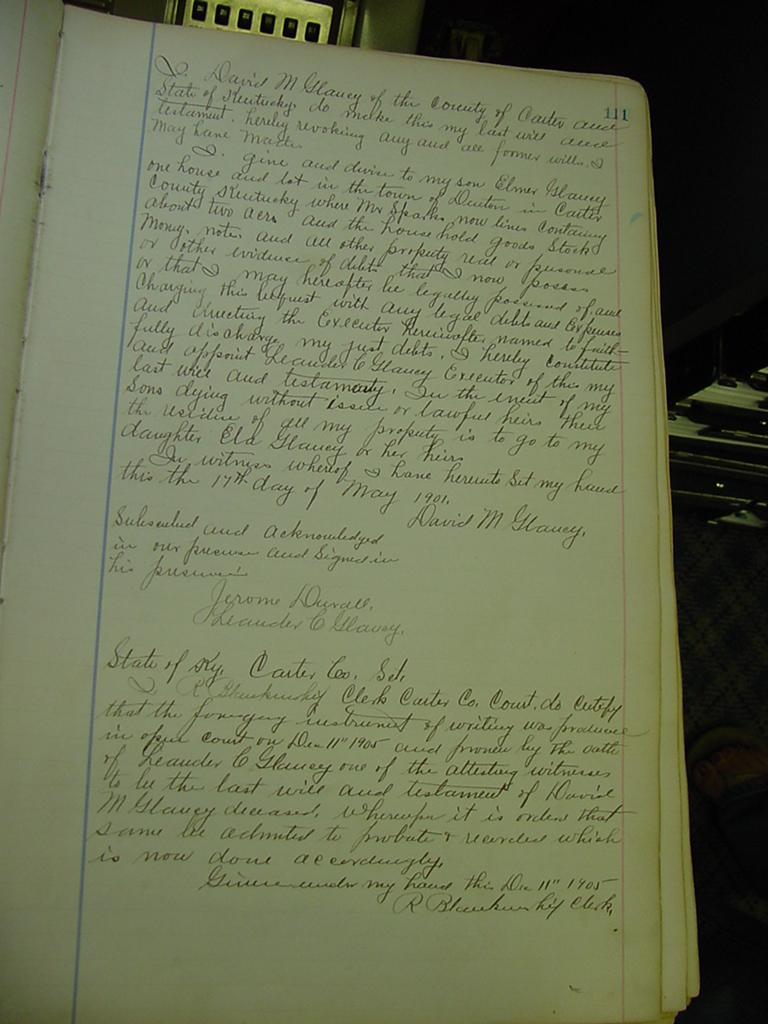 111
I. David M Glancy of the County of Carter and
State of Kentucky, do make this my last will and
testament, hereby revoking any and all former wills I
may have made.
I. give and devise to my son Elmer Glancy
one house and lot in the town of Denton in Carter
County Kentucky where Mr Sparks now lives containing
about two acrs and the house hold goods Stock
Money, notes and all other property real or personal
or other evidence of debts that I now posess
or that I may hereafter be legally possessed of, and
Charging this bequest with any legal debts and Expenses
and directing the Executor hereinafter named to faith-
fully discharge my just debts, I hereby constitute
and appoint Leander C Glancy Executor of this my
last will and testamenty. In the event of my
Sons dying without issue or lawful heirs then
the residue of all my property is to go to my
daughter Glancy or her heirs
In witness whereof I have hereunto Set my hand
this the 17th day of May 1901.
David M Glancy,
Subscribed and acknowledged
in our presence and Signed in
his presence
Jerome Duvall,
Leander C Glancy,
State of Ky, Carter Co. Sct,
I, R Blankinship Clerk Carter Co. Court, do certify
that the foregoing instrument of writing was produced
in open court on Dec 11" 1905 and proven by the oath
of Leander C Glancy one of the attesting witnesses
to be the last will and testament of David
M Glancy deceased, whereupon it is ordered that
same be admited to probate & recorded which
is now done accordingly,
Given under my hand this Dec 11" 1905
R Blankinship Clerk,